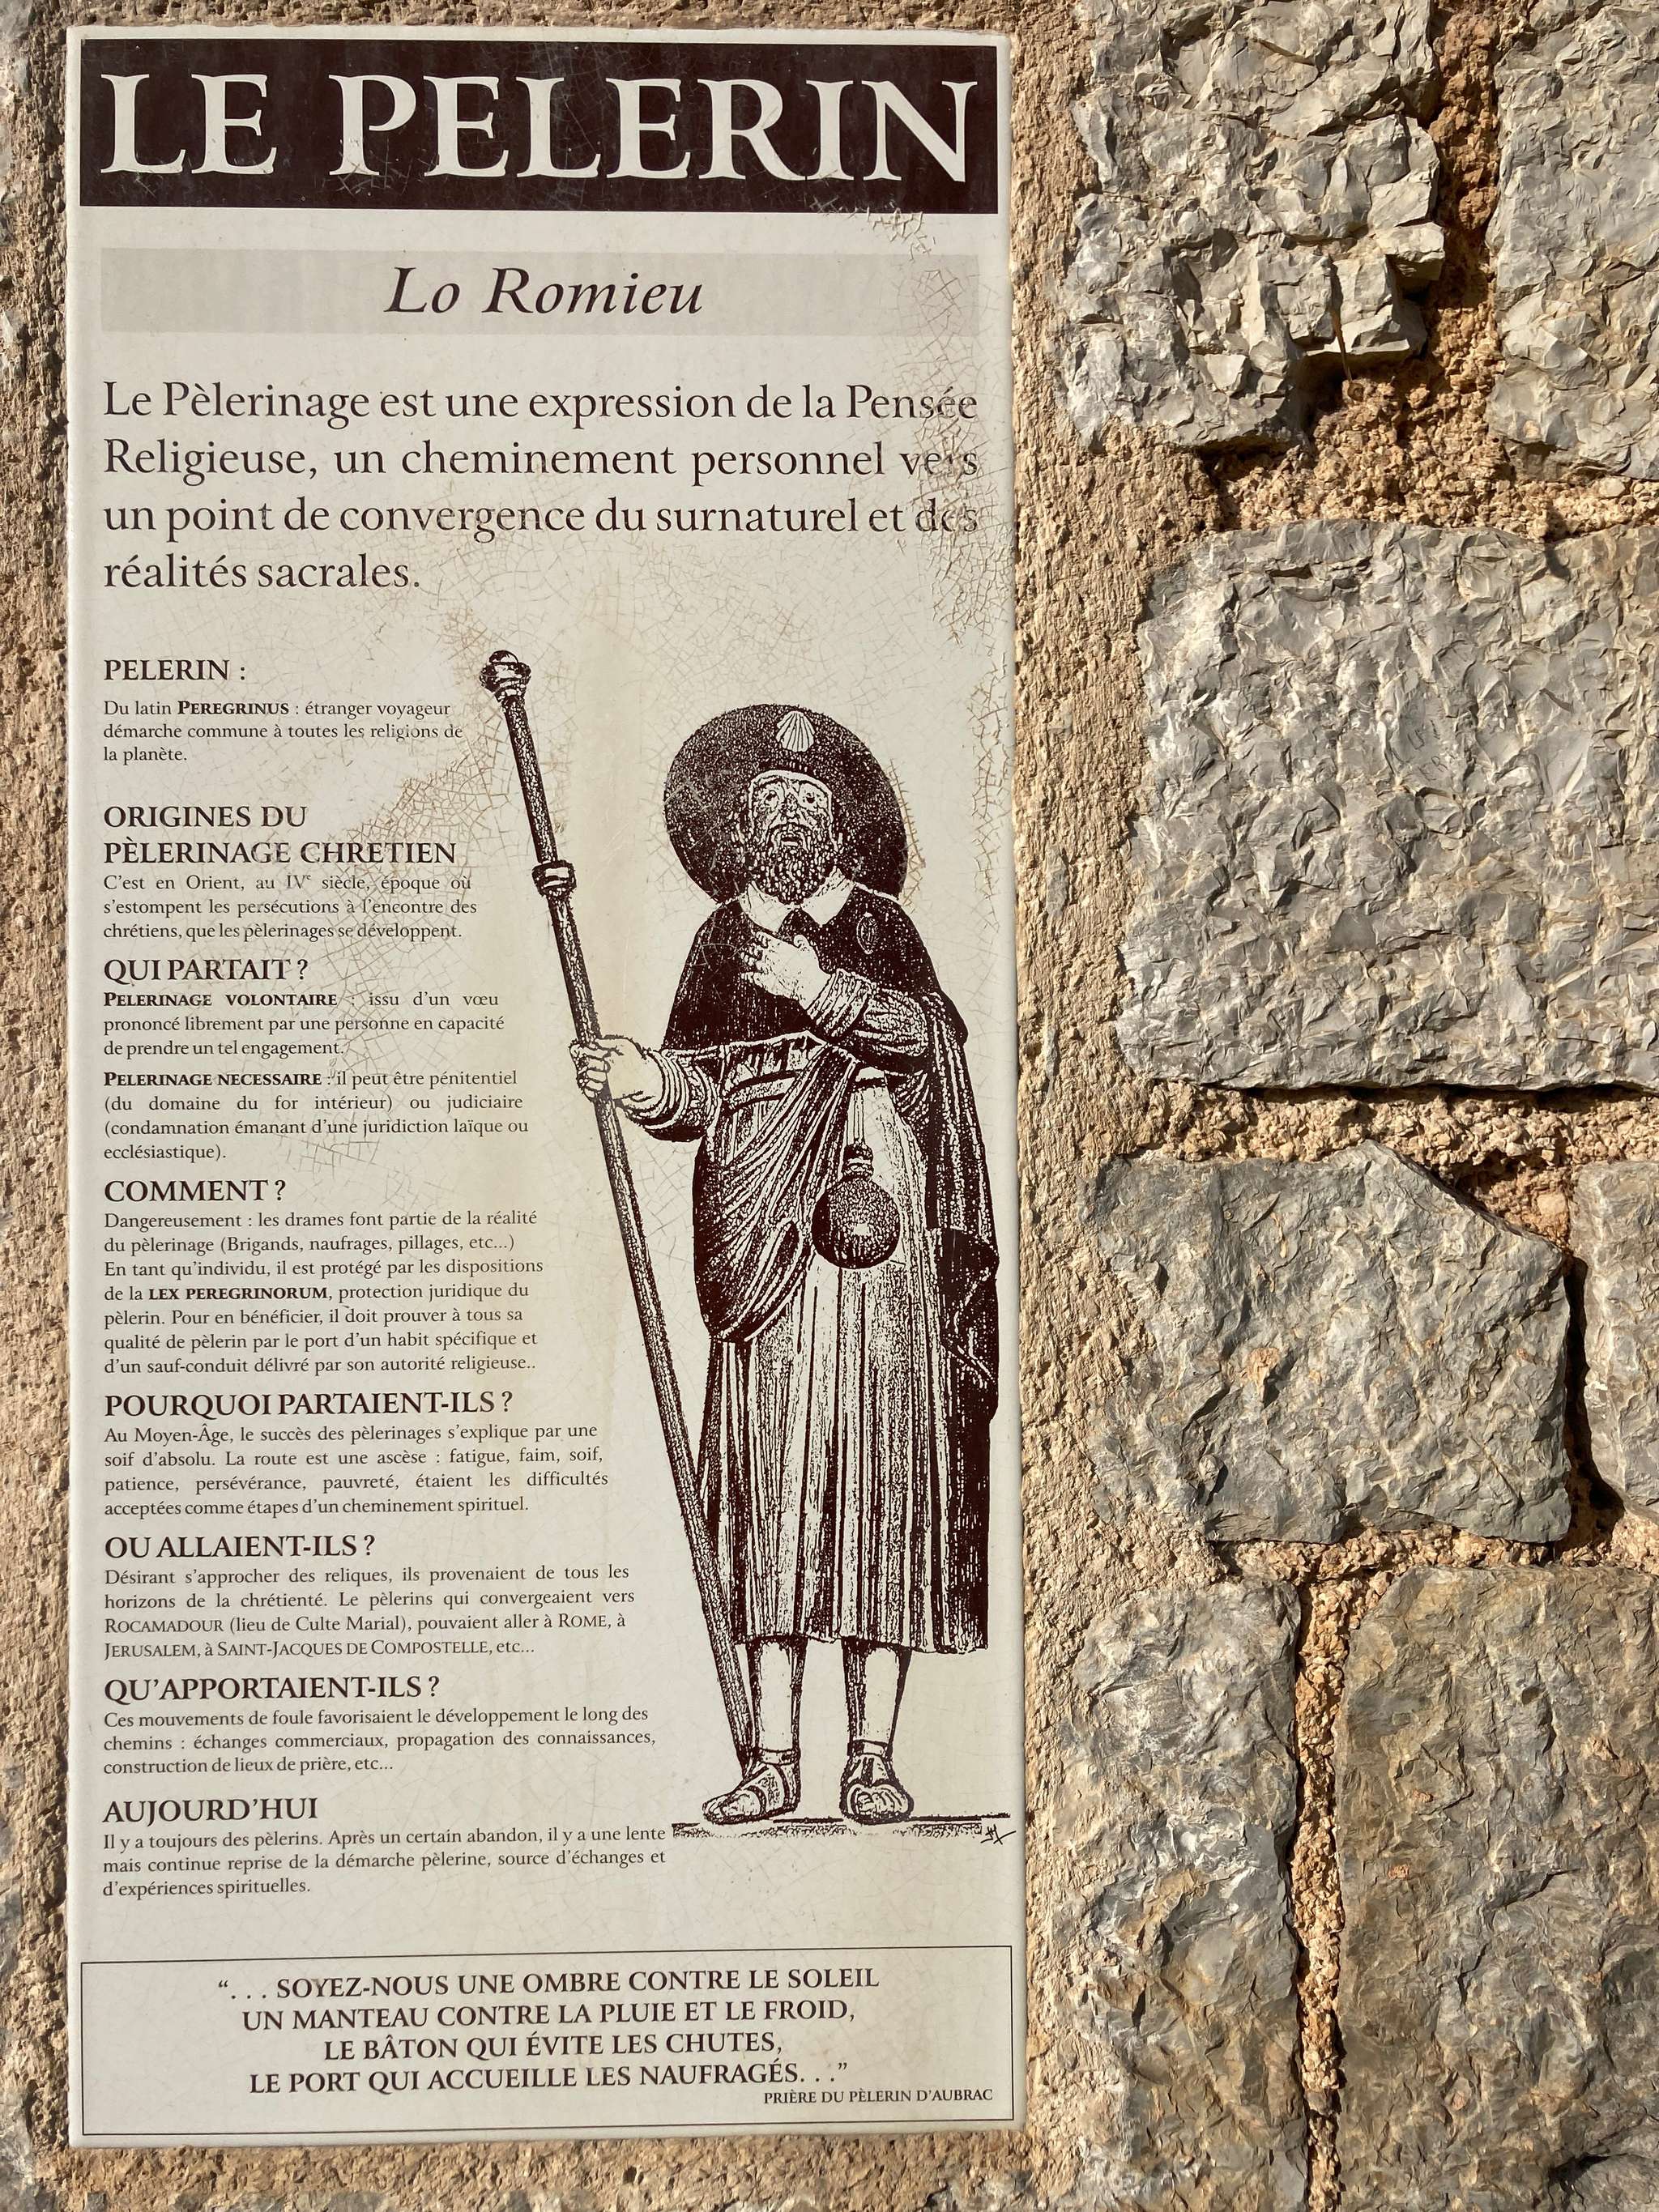 LE PELERIN
Lo Romieu
Le Pèlerinage est une expression de la Pensée
Religieuse, un cheminement personnel vers
un point de convergence du surnaturel et des
réalités sacrales.
PELERIN :
Du latin PEREGRINUS : étranger voyageur
démarche commune à toutes les religions de
la planète.
ORIGINES DU
PÈLERINAGE CHRETIEN
C'est en Orient, au IVe siècle, époque où
s'estompent les persécutions à l'encontre des
chrétiens, que les pèlerinages se développent.
QUI PARTAIT ?
PELERINAGE VOLONTAIRE : issu d'un vœu
prononcé librement par une personne en capacité
de prendre un tel engagement.
PELERINAGE NECESSAIRE : il peut être pénitentiel
(du domaine du for intérieur) ou judiciaire
(condamnation émanant d'une juridiction laïque ou
ecclésiastique).
COMMENT ?
Dangereusement : les drames font partie de la réalité
du pèlerinage (Brigands, naufrages, pillages, etc...)
En tant qu'individu, il est protégé par les dispositions
de la LEX PEREGRINORUM, protection juridique du
pèlerin. Pour en bénéficier, il doit prouver à tous sa
qualité de pèlerin par le port d'un habit spécifique et
d'un sauf-conduit délivré par son autorité religieuse..
POURQUOI PARTAIENT-ILS ?
Au Moyen-Âge, le succès des pèlerinages s'explique par une
soif d'absolu. La route est une ascèse : fatigue, faim, soif,
patience, persévérance, pauvreté, étaient les difficultés
acceptées comme étapes d'un cheminement spirituel.
OU ALLAIENT-ILS ?
Désirant s'approcher des reliques, ils provenaient de tous les
horizons de la chrétienté. Le pèlerins qui convergeaient vers
ROCAMADOUR (lieu de Culte Marial), pouvaient aller à ROME, à
JERUSALEM, à SAINT-JACQUES DE COMPOSTELLE, etc...
QU'APPORTAIENT-ILS ?
Ces mouvements de foule favorisaient le développement le long des
chemins : échanges commerciaux, propagation des connaissances,
construction de lieux de prière, etc...
AUJOURD'HUI
Il y a toujours des pèlerins. Après un certain abandon, il y a une lente
mais continue reprise de la démarche pèlerine, source d'échanges et
d'expériences spirituelles.
“. . . SOYEZ-NOUS UNE OMBRE CONTRE LE SOLEIL
UN MANTEAU CONTRE LA PLUIE ET LE FROID,
LE BÂTON QUI ÉVITE LES CHUTES,
LE PORT QUI ACCUEILLE LES NAUFRAGÉS. . .”
PRIÈRE DU PÈLERIN D'AUBRAC